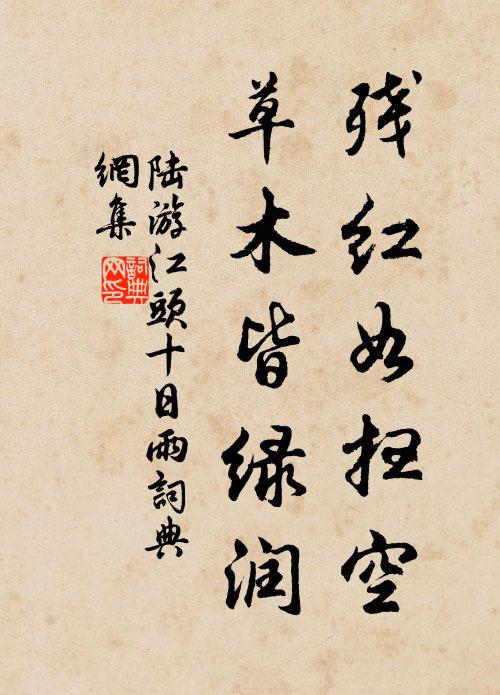 残红如扫空
草木皆绿润
陆游江頭十日雨詞典
網集
詞典
网印